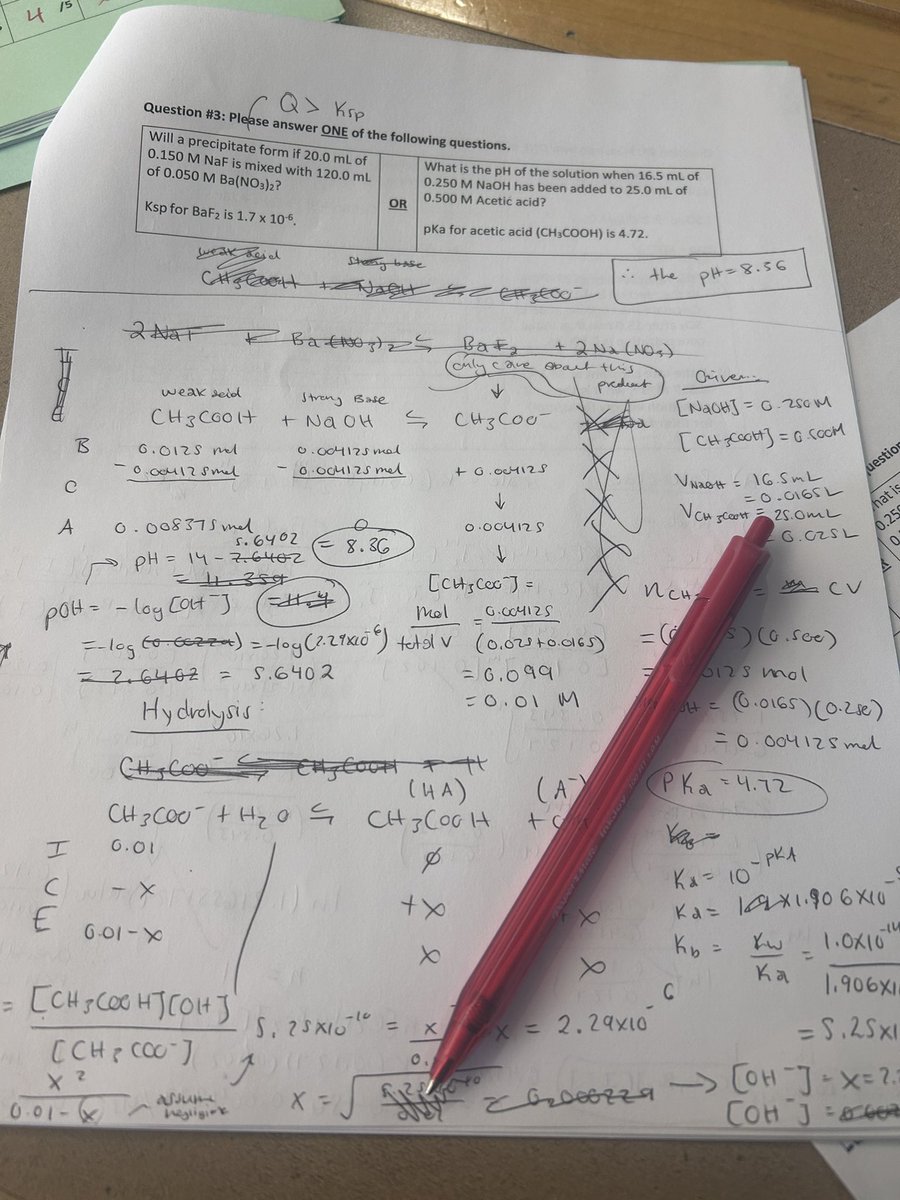 4 /5
( Q > Ksp
Question #3: Please answer ONE of the following questions.
Will a precipitate form if 20.0 mL of
0.150 M NaF is mixed with 120.0 mL
of 0.050 M Ba(NO₃)₂?
Ksp for BaF₂ is 1.7 x 10⁻⁶.
OR
What is the pH of the solution when 16.5 mL of
0.250 M NaOH has been added to 25.0 mL of
0.500 M Acetic acid?
pKa for acetic acid (CH₃COOH) is 4.72.
weak acid strong base
CH₃COOH + NaOH ⇌ CH₃COO⁻
∴ the pH = 8.36
2 NaF + Ba(NO₃)₂ ⇌ BaF₂ + 2Na(NO₃)
only care about this
product
weak acid strong Base
CH₃COOH + NaOH ⇌ CH₃COO⁻
B 0.0125 mol 0.004125 mol
C - 0.004125 mol - 0.004125 mol + 0.004125
A 0.008375 mol 0 0.004125
pH = 14 - 7.6402 5.6402 = 8.36
= 11.359
= 11.4
pOH = -log[OH⁻]
= -log(0.00229) = -log(2.29x10⁻⁶)
= 2.6402 = 5.6402
[CH₃COO⁻] =
mol = 0.004125
total V (0.025+0.0165)
= 0.099
= 0.01 M
Given...
[NaOH] = 0.250M
[CH₃COOH] = 0.500M
V NaOH = 16.5mL
= 0.0165L
V CH₃COOH = 25.0mL
= 0.025L
n CH = CV
= (0 5)(0.500)
= 0125 mol
= (0.0165)(0.250)
= 0.004125 mol
PKa = 4.72
Ka = 10^-PKA
Ka = 1.906x10
Kb = Kw = 1.0x10⁻¹⁴
Ka 1.906x1
= 5.25x1
Hydrolysis:
CH₃COO⁻ ⇌ CH₃COOH + H
(HA) (A⁻
CH₃COO⁻ + H₂O ⇌ CH₃COOH +
I 0.01 Ø
C - x + x + x
E 0.01 - x x x
= [CH₃COOH][OH]
[CH₃COO⁻]
x²
0.01 - x
assume
negligible
5.25x10⁻¹⁰ = x
0.
x = 2.29x10⁻
x = √ = 0.000229 → [OH⁻] = x = 2.
[OH⁻] = 0.002
uestion
hat is
0.250